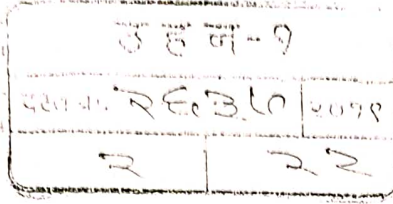 ट ह न - १
दस्त क्र. २६३७ २०१९
२ २२